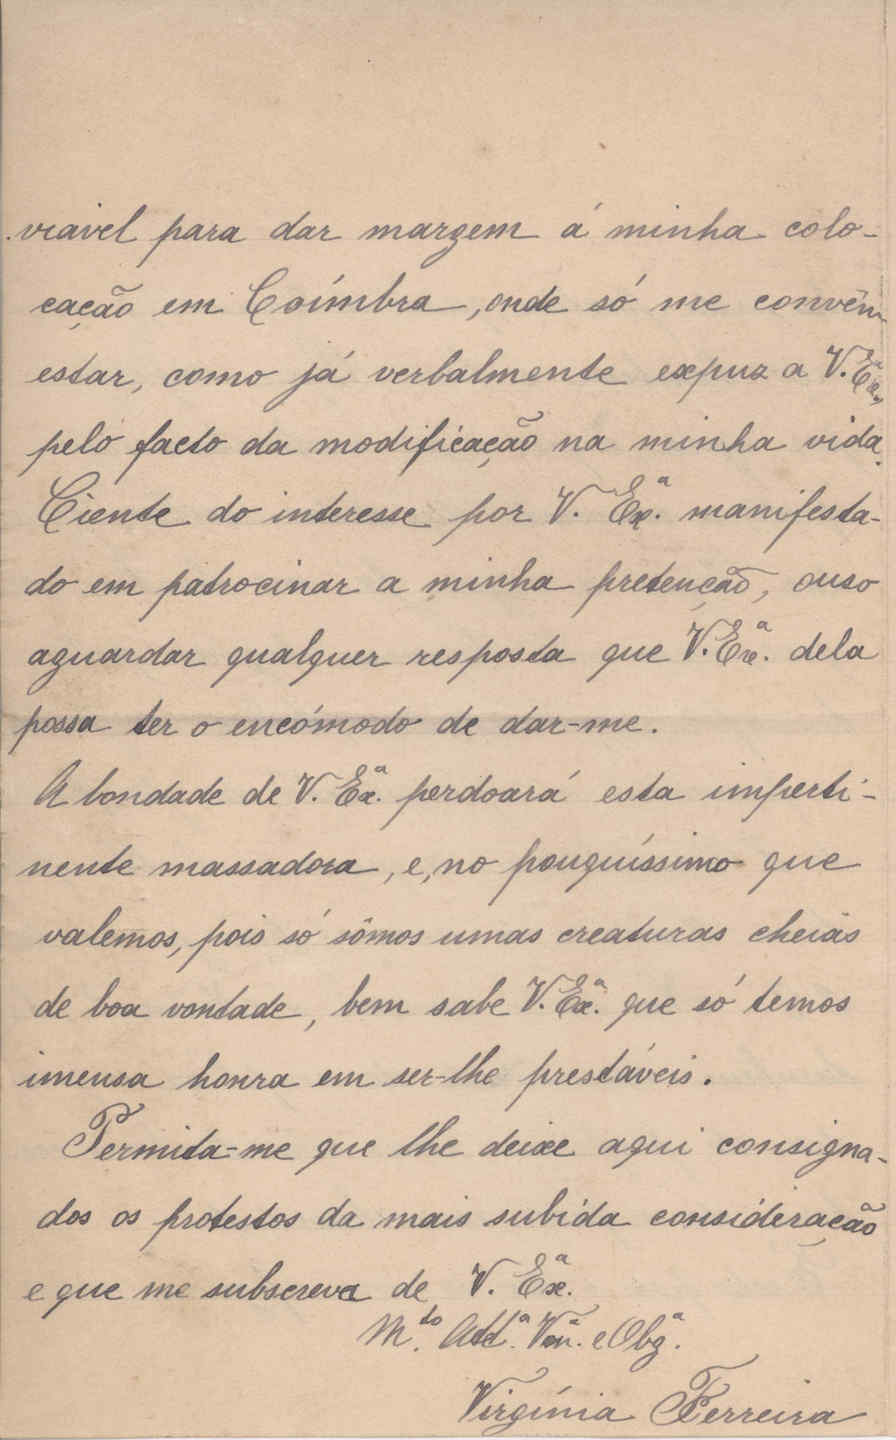 viavel para dar margem á minha colo-
cação em Coímbra, onde só me convêm
estar, como já verbalmente expuz a V. Exª,
pelo facto da modificação na minha vida.
Ciente do interesse por V. Exª. manifesta-
do em patrocinar a minha pretenção, ouso
aguardar qualquer resposta que V. Exª. dela
possa ter o encómodo de dar-me.
A bondade de V. Exª. perdoará esta imperti-
nente massadora, e, no pouquíssimo que
valemos, pois só sômos umas creaturas cheias
de boa vontade, bem sabe V. Exª. que só temos
imensa honra em ser-lhe prestáveis.
Permita-me que lhe deixe aqui consigna-
dos os protestos da mais subida consideração
e que me subscreva de V. Exª.
M.to Attª. Venª. e Obgª.
Virgínia Ferreira